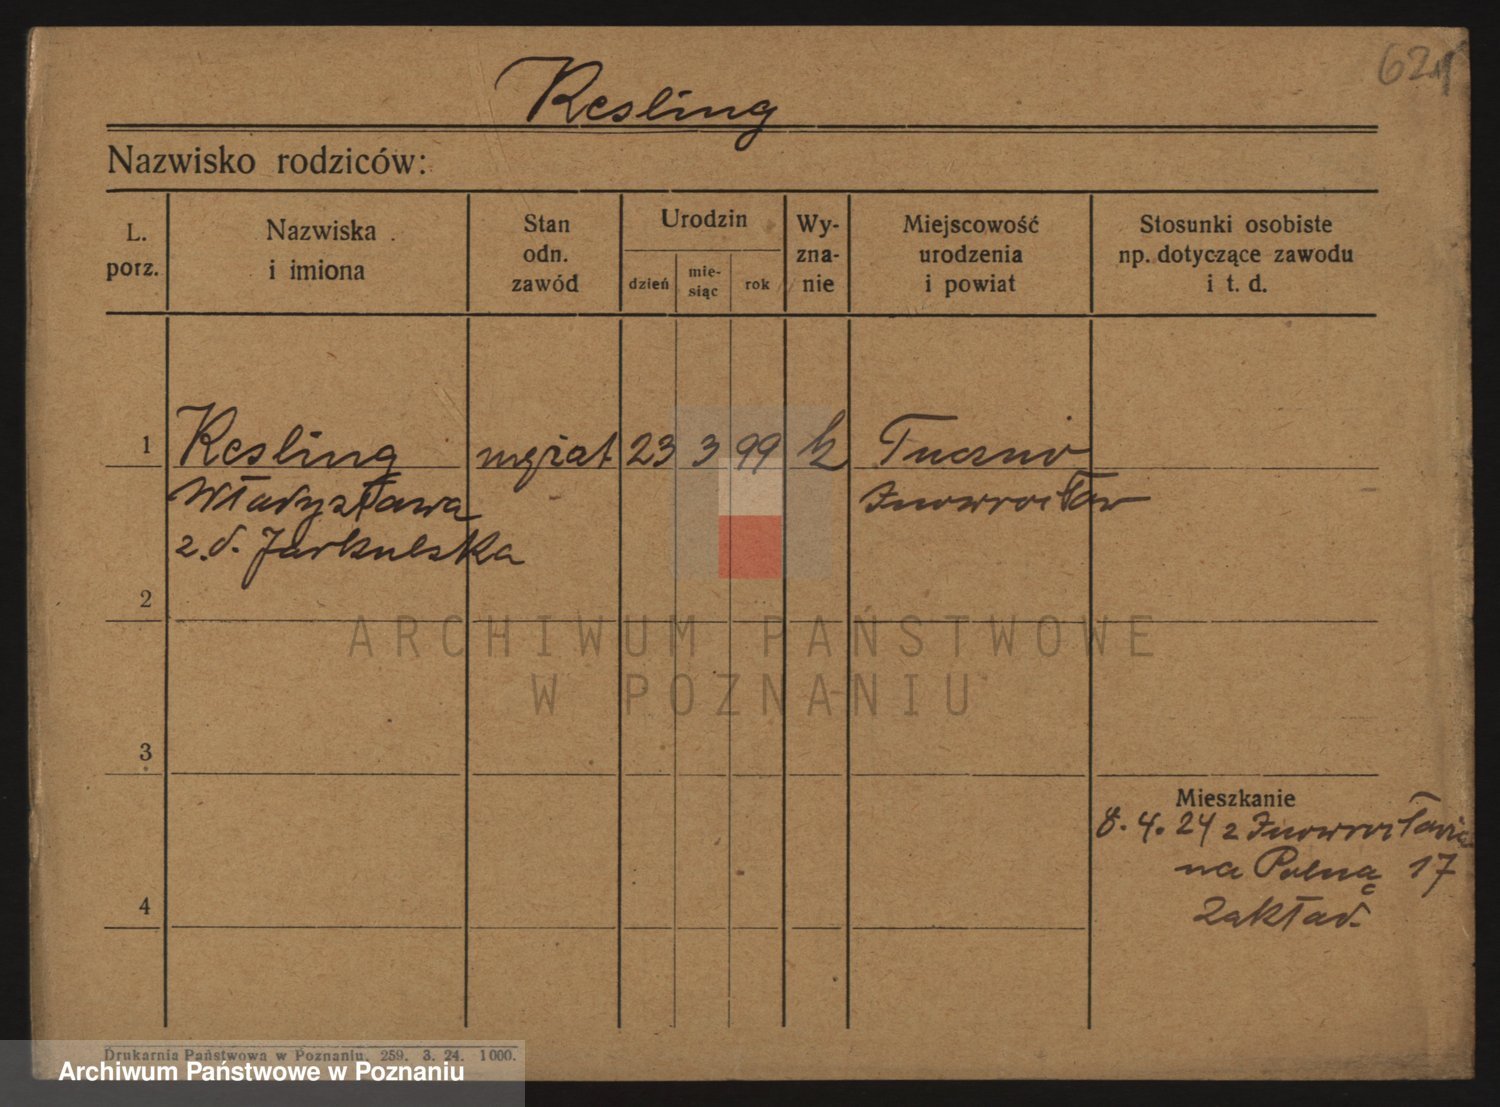 621
Resling
Nazwisko rodziców:
L. porz.
Nazwiska i imiona
Stan odn. zawód
Urodzin
dzień
mie-
siąc
rok
Wy-
zna-
nie
Miejscowość urodzenia i powiat
Stosunki osobiste np. dotyczące zawodu i t. d.
1 Resling mężat 23 3 99 k Tuczno
Władysława Inowrocław
z. d. Jarkulska
2
3
4
Mieszkanie
8. 4. 24 z Inowrocławia
na Polną 17
Zakład.
ARCHIWUM PAŃSTWOWE
W POZNANIU
Drukarnia Państwowa w Poznaniu. 259. 3. 24. 1000.
Archiwum Państwowe w Poznaniu